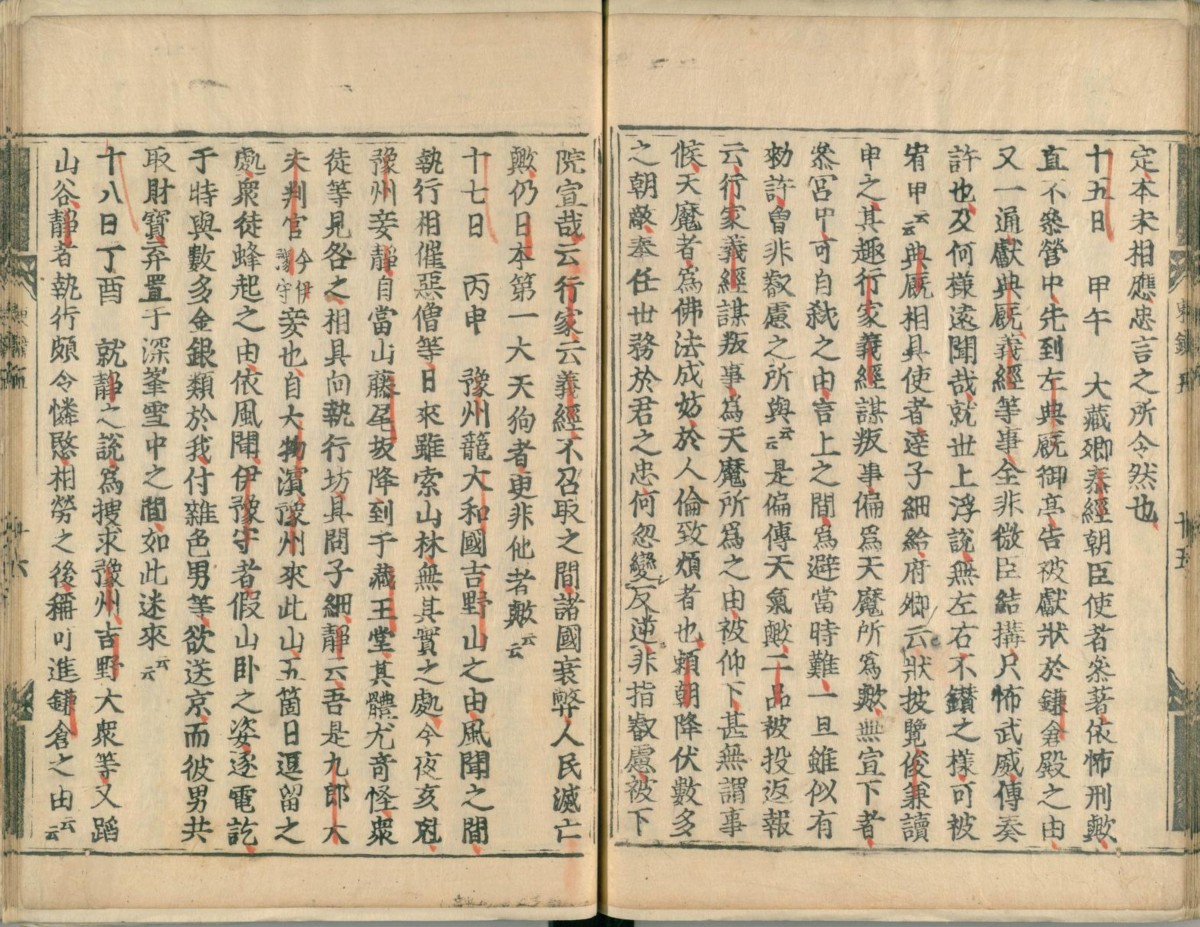 定本宋相應忠言之所令然也
十五日　甲午　大藏卿泰經朝臣使者參著依怖刑歟
直不參營中先到左典厩御亭告被獻狀於鎌倉殿之由
又一通獻典厩義經等事全非微臣結搆只怖武威傳奏
許也及何樣遠聞哉就世上浮說無左右不鑚之樣可被
宥申之云云典厩相具使者達子細給府卿云狀披覽俊兼讀
申之其趣行家義經謀叛事偏爲天魔所爲歟無宣下者
參宮中可自殺之由言上之間爲避當時難一旦雖似有
勅許曾非叡慮之所與云云是偏傳天氣歟二品被投返報
云行家義經謀叛事爲天魔所爲之由被仰下甚無謂事
候天魔者爲佛法成妨於人倫致煩者也頼朝降伏數多
之朝敵奉任世務於君之忠何忽變反逆非指叡慮被下
院宣哉云行家云義經不召取之間諸國衰弊人民滅亡
歟仍日本第一大天狗者更非他者歟云云
十七日　丙申　豫州籠大和國吉野山之由風聞之間
執行相催惡僧等日來雖索山林無其實之處今夜亥剋
豫州妾靜自當山藤尾坂降到于藏王堂其體尤奇怪衆
徒等見咎之相具向執行坊具問子細靜云吾是九郎大
夫判官今伊豫守妾也自大物濱豫州來此山五箇日逗留之
處衆徒蜂起之由依風聞伊豫守者假山臥之姿逐電訖
于時與數多金銀類於我付雜色男等欲送京而彼男共
取財寶弃置于深峯雪中之間如此迷來云云
十八日丁酉　就靜之說爲捜求豫州吉野大衆等又蹈
山谷靜者執行頗令憐愍相勞之後稱可進鎌倉之由云云